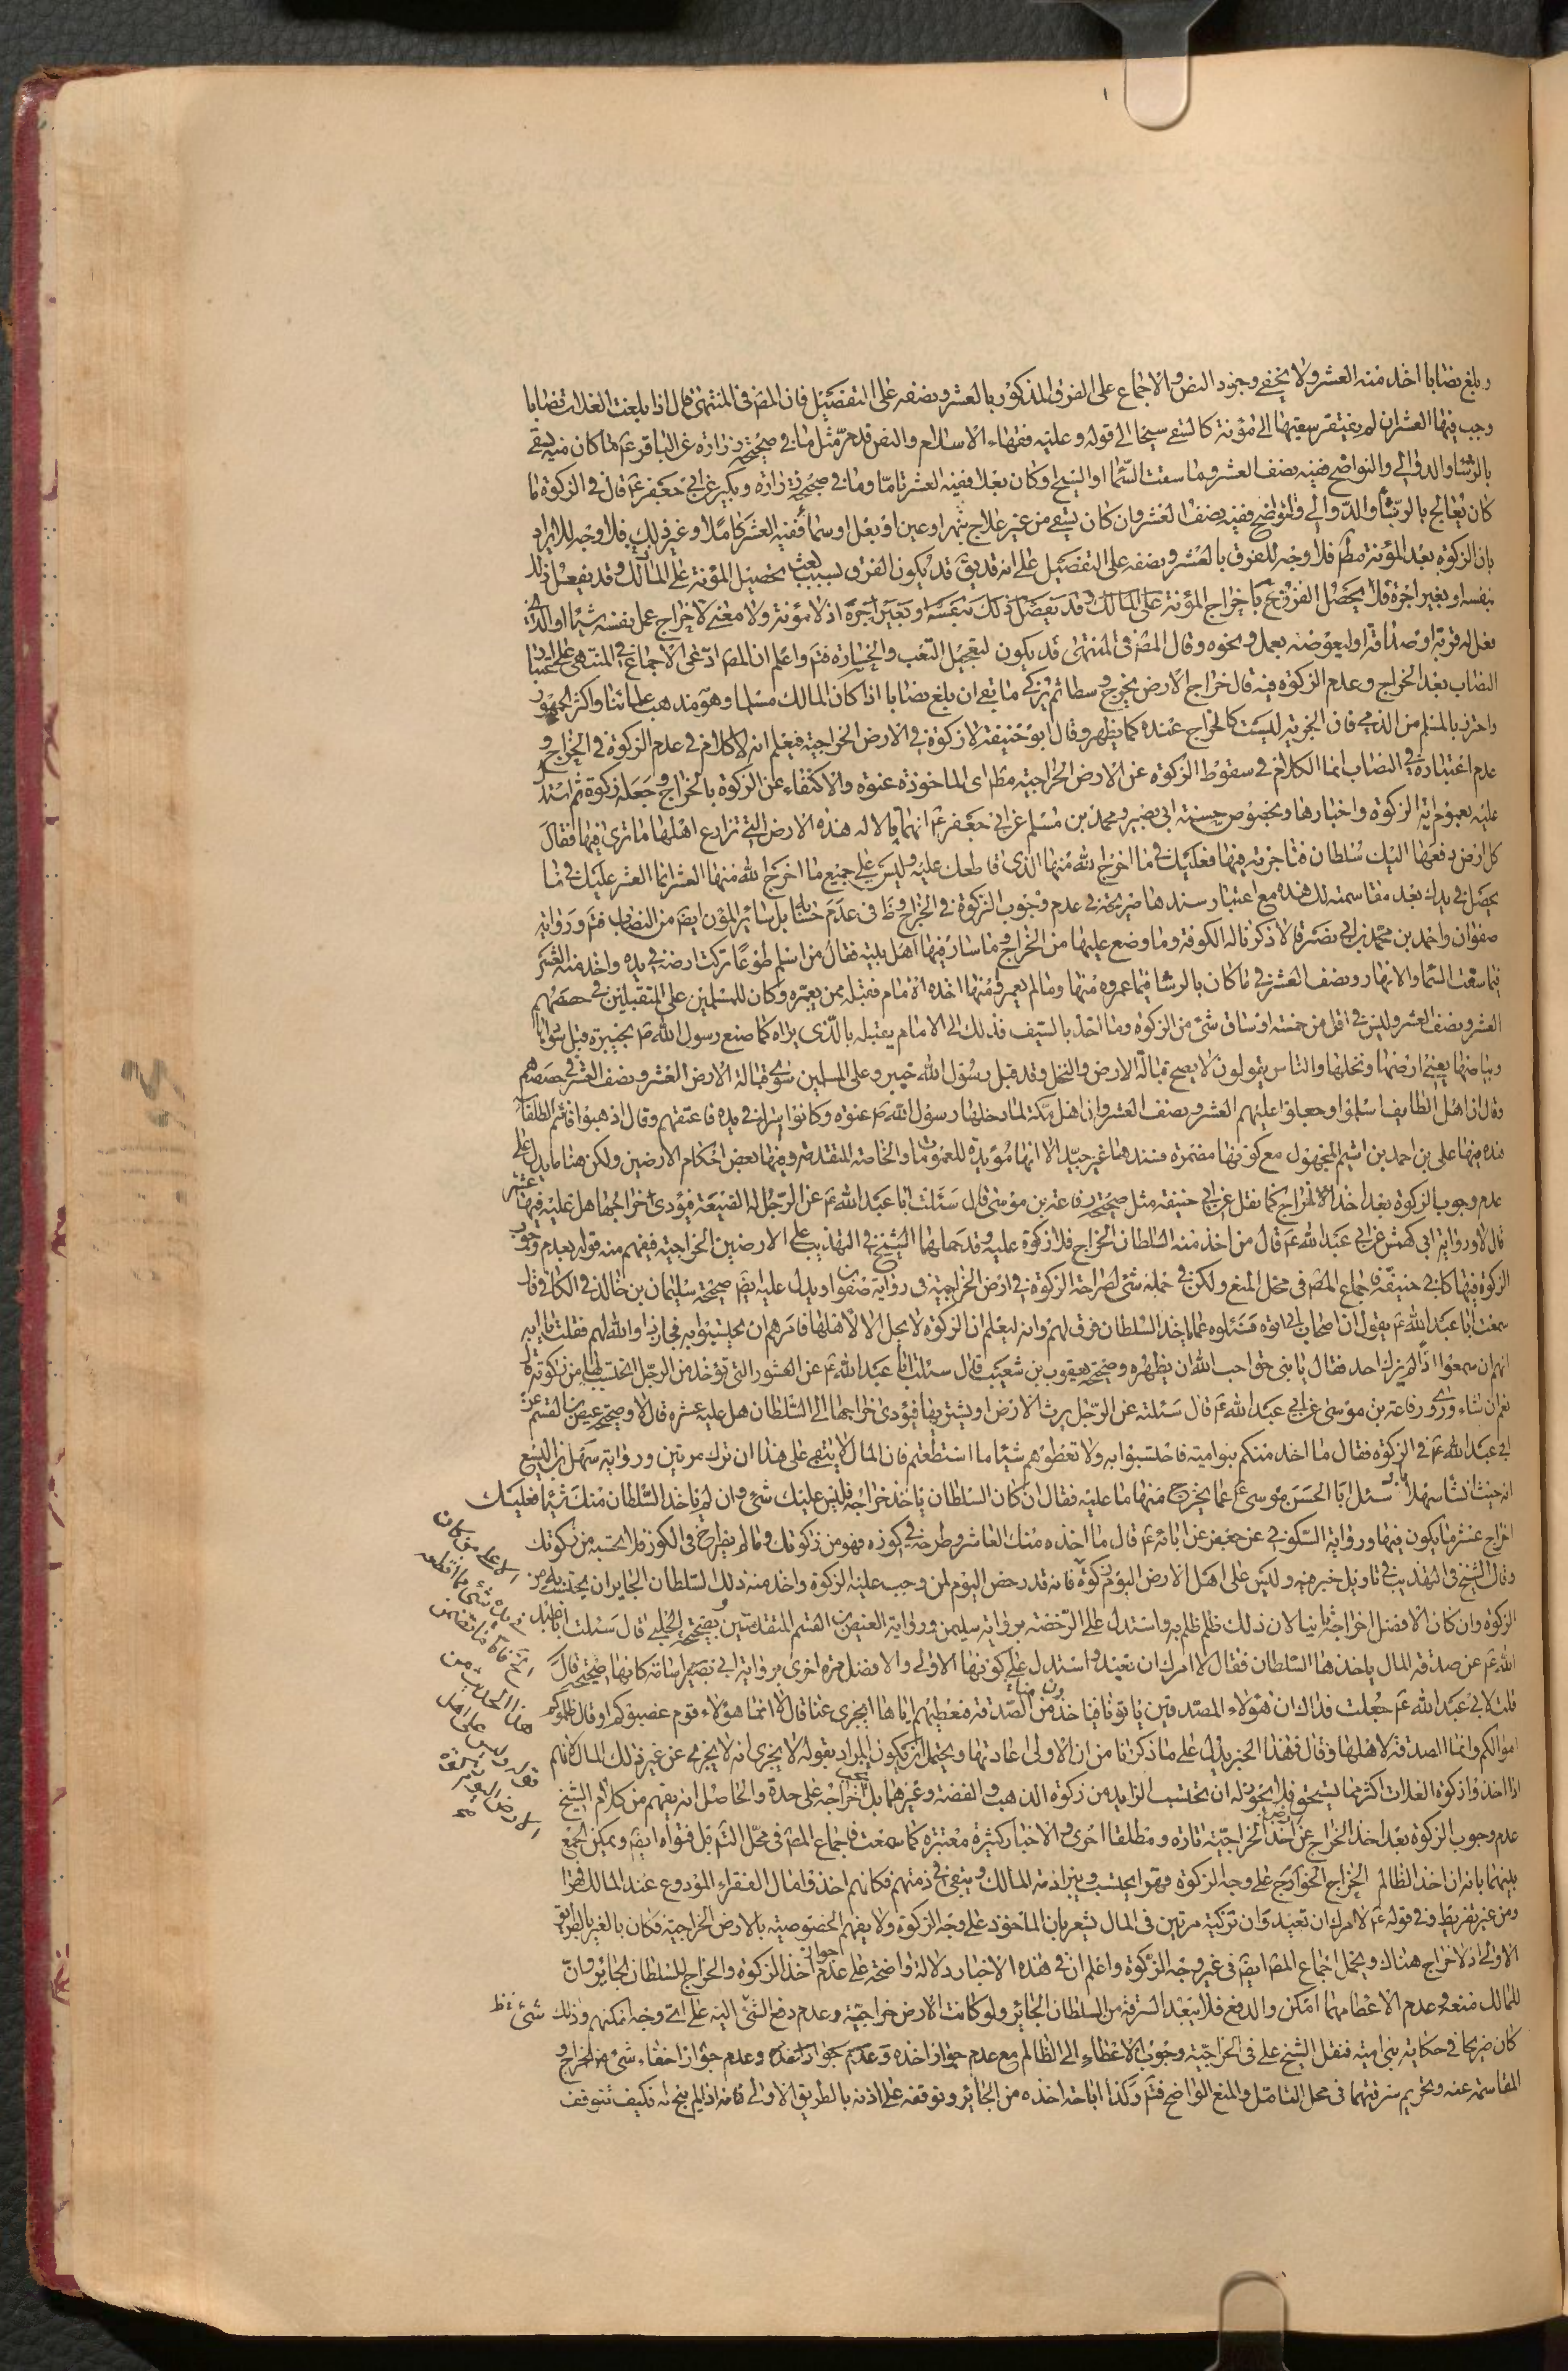 ١
وبلغ نصابا اخذ منه العشر ولا يخفى وجود النص والاجماع على الفرق المذكور بالعشر ونصفه على التفصيل فان المص فى المنتهى قال اذا بلغت الغلات نصابا
وجب فيها العشر ان لم يفتقر سقيتها الى مؤنة كالسقى سيحا الى قوله وعليه فقهاء الاسلام والنص قد مرّ مثل ما فى صحيحة زرارة عن الباقر ع ما كان منه يسقى
بالرشا والدوالى والنواضح ففيه نصف العشر وما سقت السّماء او السيح او كان بعلا ففيه العشر تامّا وما فى صحيحة زرارة وبكير عن ابى جعفر ع قال فى الزكوة ما
كان يعالج بالرّشا والدّوالى والنواضح ففيه نصف العشر وان كان يسقى من غير علاج بنهر او عين او بعل او سماء ففيه العشر كاملا وغير ذلك فلا وجه للايراد
بان الزكوة بعد المؤنة مط فلا وجه للفرق بالعشر ونصفه على التفصيل على انه قد يق قد يكون الفرق لسبب تحصيل المؤنة على المالك وقد يفعل ذلك
بنفسه او بغير اجرة فلا يحصل الفرق ح باخراج المؤنة على المالك اذ لا مؤنة ولا معنى لاخراج عمل نفسه شيئا او الذى
يفعل له قربة او صداقة او ليعوضه بعمل ونحوه وقال المص فى المنتهى قد يكون لتعجيل التعب والخسارة فتم واعلم ان المص ادّعى الاجماع فى المنتهى على اعتبار
النصاب بعد الخراج وعدم الزكوة فيه قال خراج الارض يخرج وسطا ثم يزكى ما بقى ان بلغ نصابا اذا كان المالك مسلما وهو مذهب علمائنا واكثر الجمهور
واحترز بالمسلم من الذمى فان الجزية ليست كالخراج عنده كما يظهر وقال ابو حنيفة لا زكوة فى الارض الخراجية فيعلم انه لا كلام فى عدم الزكوة فى الخراج و
عدم اعتباره فى النصاب انما الكلام فى سقوط الزكوة عن الارض الخراجية مط اى الماخوذة عنوة والاكتفاء عن الزكوة بالخراج وجعله زكوة ثم استدل
عليه بعموم اية الزكوة واخبارها وبخصوص حسنة ابى بصير ومحمد بن مسلم عن ابى جعفر ع انهما قالا له هذه الارض التى تزارع اهلها ما ترى فيها فقال
كل ارض دفعها اليك سلطان فتاجرته فيها فعليك فى ما اخرج الله منها الذى قاطعك عليه وليس على جميع ما اخرج الله منها العشر انما العشر عليك فى ما
يحصل فى يدك بعد مقاسمته لك هذه مع اعتبار سندها صريحة فى عدم وجوب الزكوة فى الخراج وظ فى عدم حسابه بل سائر المؤن ايضا من النصاب فتم ورواية
صفوان واحمد بن محمد بن ابى نصر قالا ذكرنا له الكوفة وما وضع عليها من الخراج وما سار فيها اهل بيته فقال من اسلم طوعا تركت ارضه فى يده واخذ منه العشر
فيما سقت السّماء والانهار ونصف العشر فى ما كان بالرشا فيما عمروه منها وما لم يعمروه منها اخذه الامام فقبله ممن يعمره وكان للمسلمين على المتقبلين فى حصصهم
العشر ونصف العشر وليس فى اقل من خمسة اوساق شئ من الزكوة وما اخذ بالسيف فذلك الى الامام يقبله بالّذى يراه كما صنع رسول الله ص بخيبر قبل سوادها
وبياضها يعنى ارضها ونخلها والناس يقولون لا يصح قبالة الارض والنخل وقد قبل رسول الله خيبر وعلى المسلمين سوى قبالة الارض العشر ونصف العشر فى حصصهم
وقال ان اهل الطايف اسلموا وجعلوا عليهم العشر ونصف العشر وان اهل مكة لما دخلها رسول الله ص عنوة وكانوا اسراء فى يده فاعتقهم وقال اذهبوا فانتم الطلقاء
هذه فيها على بن احمد بن اشيم المجهول مع كونها مضمرة فسندها غير جيد الا انها مؤيدة للعمومات والخاصة المتقدمة وفيها بعض احكام الارضين ولكن هنا ما يدل على
عدم وجوب الزكوة بعد اخذ الخراج كما نقل عن ابى حنيفة مثل صحيحة رفاعة بن موسى قال سئلت ابا عبد الله ع عن الرّجل له الضيعة فيؤدى خراجها هل عليه فيها عشر
قال لا ورواية ابى كهمش عن ابى عبد الله ع قال من اخذ منه السّلطان الخراج فلا زكوة عليه وقد حملها الشيخ فى التهذيب على الارضين الخراجية فيفهم منه قوله بعدم وجوب
الزكوة فيها كابى حنيفة فاجماع المص فى محل المنع ولكن فى حمله شئ لصراحة الزكوة فى ارض الخراجية فى رواية صفوان ويدل عليه ايضا صحيحة سليمان بن خالد فى الكافى قال
سمعت ابا عبد الله ع يقول ان اصحاب ابى اتوه فسئلوه عما ياخذ السّلطان فرق لهم وانه ليعلم ان الزكوة لا يحل الا لاهلها فامرهم ان يحتسبوا به فجاز ذا والله لهم فقلت يا ابه
انهم ان سمعوا اذا لم يزك احد فقال يا بنى حق احب الله ان يظهره وصحيحة يعقوب بن شعيب قال سئلت ابا عبد الله ع عن العشور التى تؤخذ من الرّجل ايحتسب بها من زكوته قال
نعم ان شاء وروى رفاعة بن موسى عن ابى عبد الله ع قال سئلته عن الرّجل يرث الارض او يشتريها فيؤدى خراجها الى السّلطان هل عليه عشر قال لا وصحيحة عيص بن القسم عن
ابى عبد الله ع فى الزكوة فقال ما اخذ منكم بنو امية فاحتسبوا به ولا تعطوهم شيئا ما استطعتم فان المال لا يبقى على هذا ان تزك مرتين ورواية سهل بن اليسع
انه حيث انشا سهلاباد سئل ابا الحسن موسى ع عما يخرج منها ما عليه فقال ان كان السلطان ياخذ خراجه فليس عليك شئ وان لم ياخذ السّلطان منك شيئا فعليك
اخراج عشر ما يكون فيها ورواية السّكونى عن جعفر عن ابائه ع قال ما اخذه منك العاشر وطرحه فى كوزه فهو من زكوتك وما لم يطرح فى الكوز فلا تحتسبه من زكوتك
وقال الشيخ فى التهذيب فى تاويل خبر وليس على اهل الارض اليوم زكوة فانه قد رخص اليوم لمن وجب عليه الزكوة واخذ منه ذلك السّلطان الجاير ان يحتسب به من
الزكوة وان كان الافضل اخراجه ثانيا لان ذلك ظلم ظلم به واستدل على الرّخصة برواية سليمن ورواية العيص بن القسم المتقدمتين وبصحيحة الحلبى قال سئلت ابا عبد
الله ع عن صدقة المال ياخذها السّلطان فقال لا امرك ان تعيد واستدل على كونها الاولى والافضل مرة اخرى برواية ابى بصير اسامة كانها صحيحة قال
قلت لابى عبد الله ع جعلت فداك ان هؤلاء المصدقين ياتونا فياخذون منا الصّدقة فنعطيهم اياها ايجزى عنا قال لا انما هؤلاء قوم غصبوكم او قال ظلموكم
اموالكم وانما الصدقة لاهلها وقال فهذا الخبر يدل على ما ذكرنا من ان الاولى اعادتها ويحتمل ان يكون المراد بقوله لا يجزى انه لا يجزى عن غير ذلك المال لانهم
اذا اخذوا زكوة الغلات اكثر مما يستحق فلا يجوز له ان يحتسب الزايد من زكوة الذهب والفضة وغيرهما بل يجب اخراجه على حدة والحاصل انه يفهم من كلام الشيخ
عدم وجوب الزكوة بعد اخذ الخراج عن ارض الخراجيّة تارة ومطلقا اخرى والاخبار كثيرة معتبرة كما سمعت فاجماع المص فى محل التم قبل فتواه ايضا ويمكن الجمع
بينهما بانه ان اخذ الظالم الخراج الخوارج على وجه الزكوة فهو يحتسب ويبرء ذمة المالك ويبقى فى ذمتهم فكانهم اخذوا مال الفقراء المودوع عند المالك قهرا
ومن غير تفريط وفى قوله ع لا امرك ان تعيد وان تزكيه مرتين فى المال يشعر بان الماخوذ على وجه الزكوة ولا يفهم الخصوصية بالارض الخراجية فكان بالغير بالطريق
الاولى اذ لا خراج هناك ويحمل اجماع المص ايضا فى غير وجه الزكوة واعلم ان فى هذه الاخبار دلالة واضحة على عدم جواز اخذ الزكوة والخراج للسّلطان الجائر وانّ
للمالك منعه وعدم الاعطاء مهما امكن والدفع فلا يبعد السّرقة من السلطان الجائر ولو كانت الارض خراجيّة وعدم دفع الشئ اليه على اى وجه امكنهم وذلك شئ ظ
كان صريحا فى حكاية بنى امية فنقل الشيخ على فى الخراجيّة وجوب الاعطاء الى الظالم مع عدم جواز اخذه وعدم جواز وعدم جواز اخفاء شئ من الخراج و
المقاسمة عنه وتحريم سرقتهما فى محل التامّل والمنع الواضح فتم وكذا اباحة اخذه من الجائر وتوقفه على اذنه بالطريق الاولى فانه اذا لم يبح له فكيف يتوقف